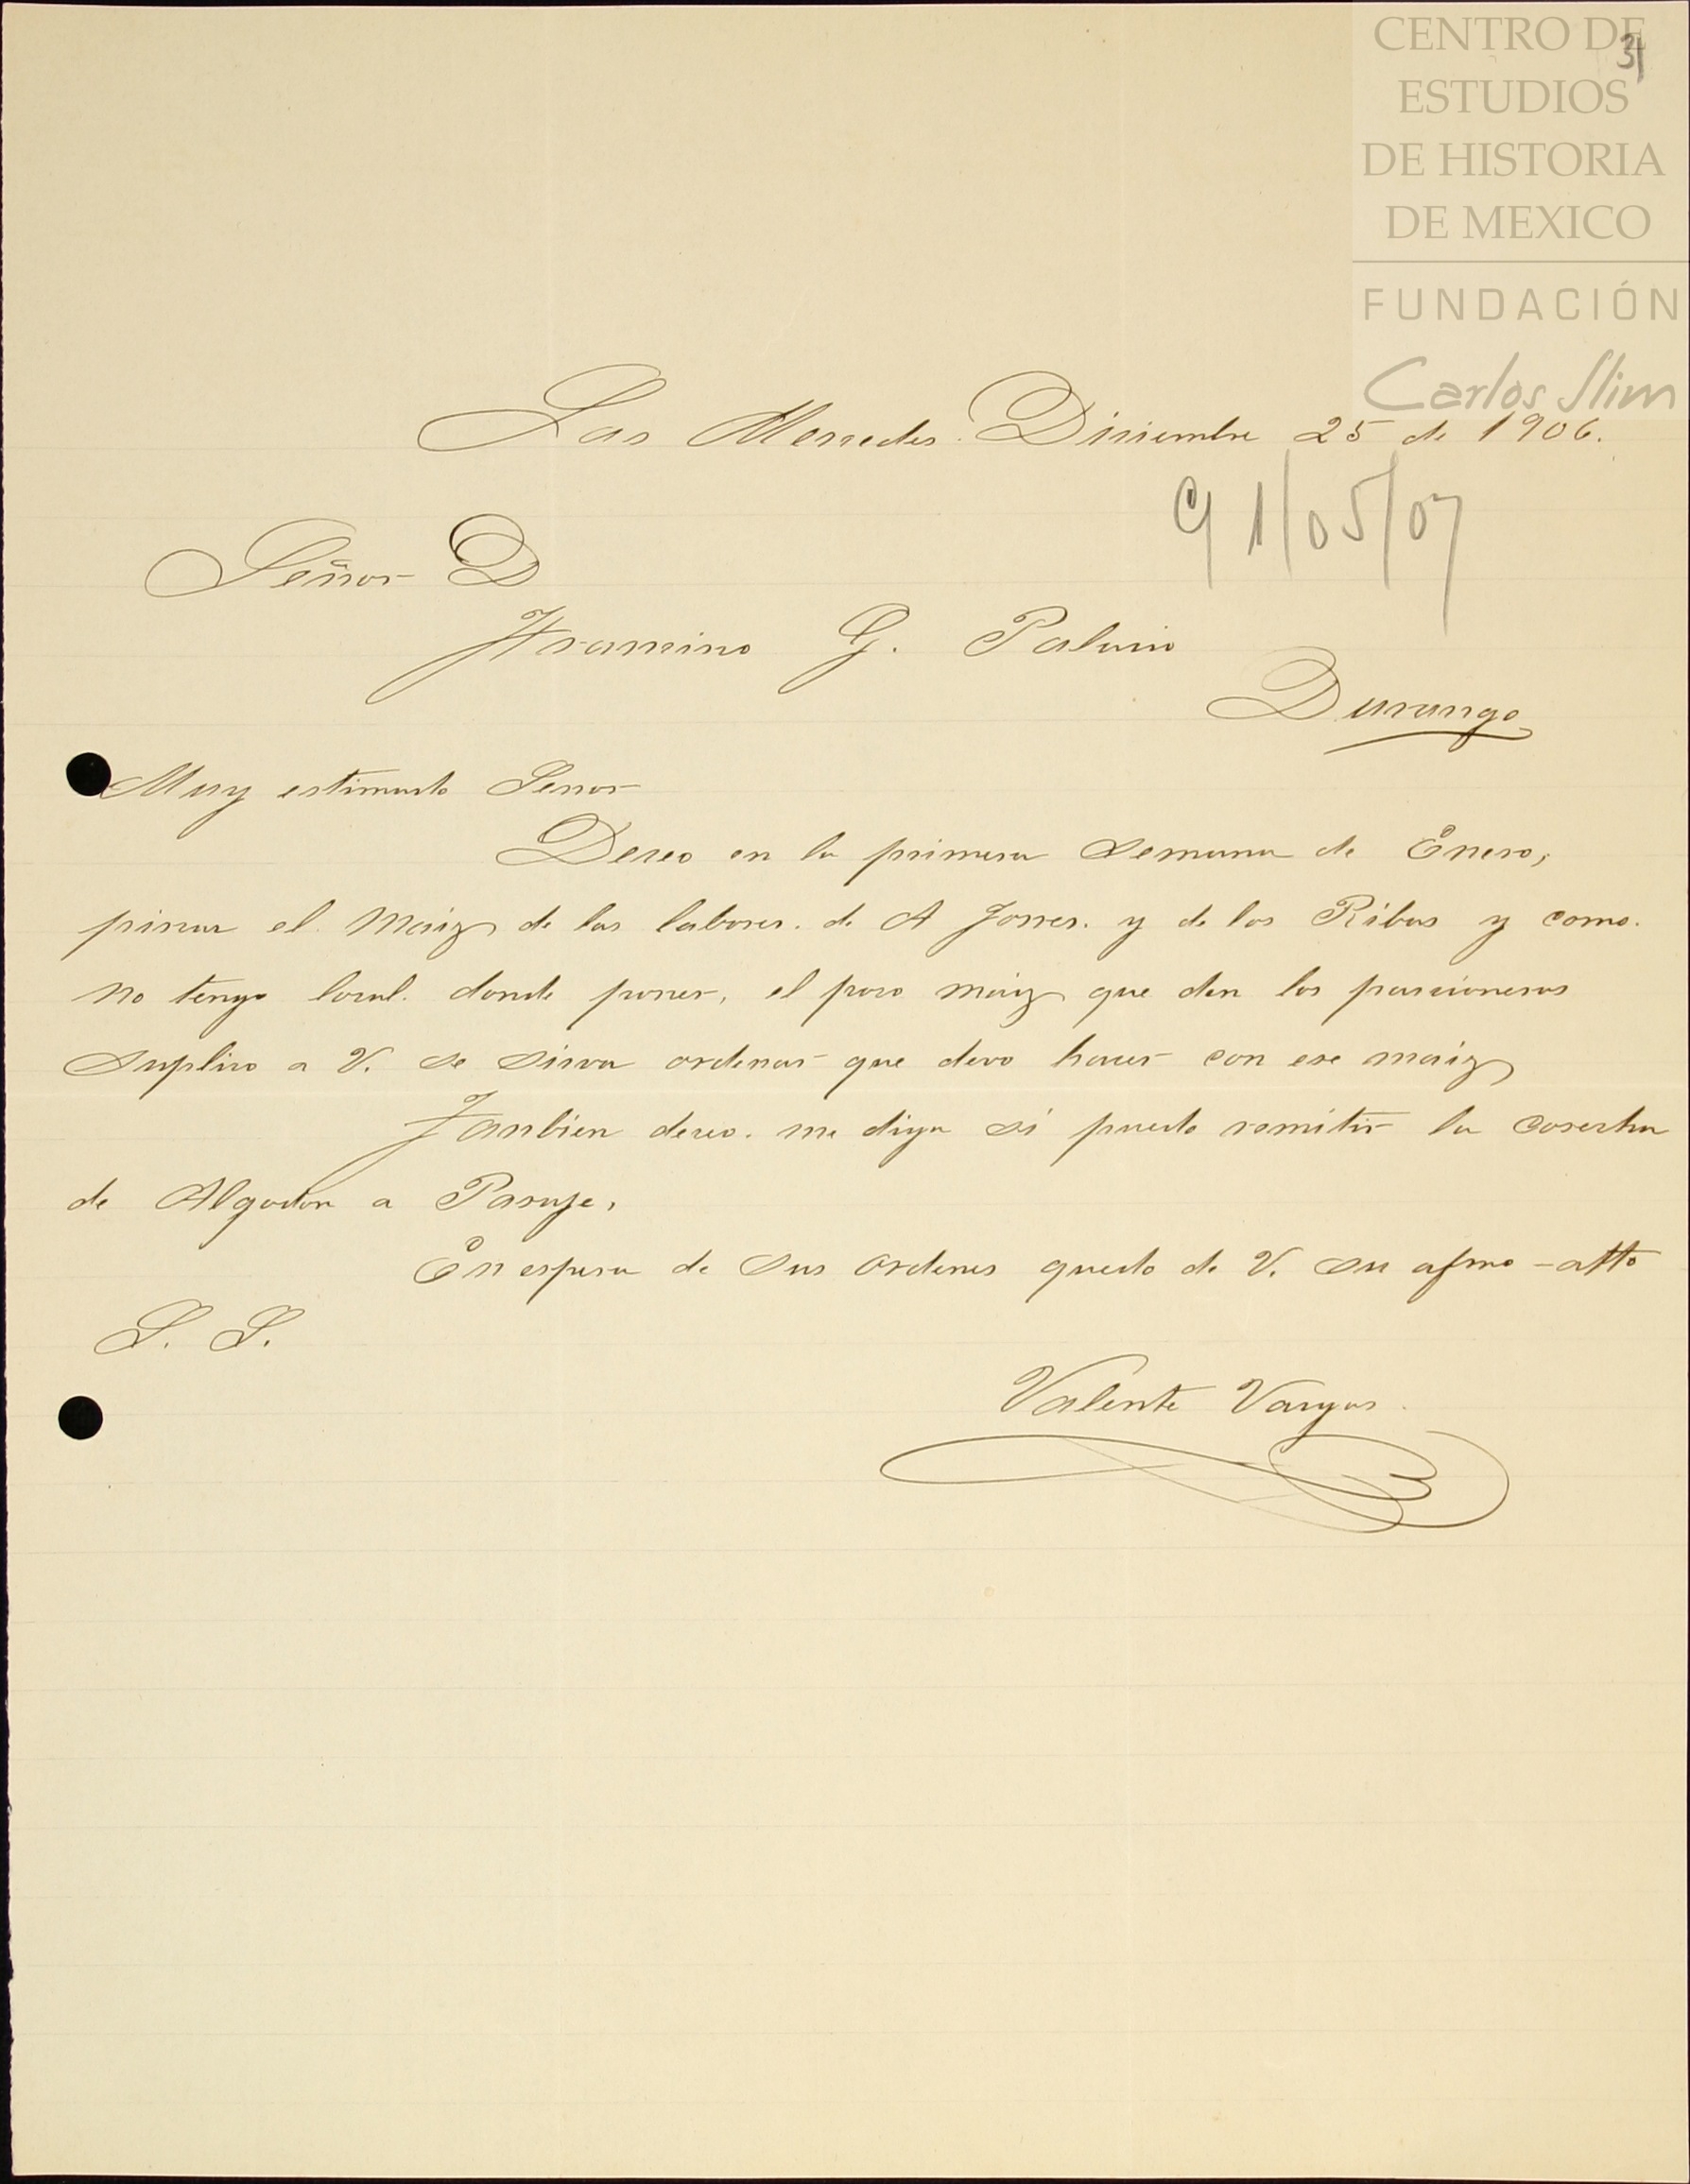 CENTRO DE
ESTUDIOS
DE HISTORIA
DE MEXICO
FUNDACIÓN
Carlos Slim
31
Las Mercedes. Diciembre 25 de 1906.
C 1/05/07
Señor D
Francisco G. Palacio
Durango
Muy estimado Señor
Deseo en la primera semana de Enero,
piscar el Maiz de las labores. de A Torres. y de los Ribas y como.
no tengo local. donde poner, el poco maiz que den los parcioneros
suplico a V. se sirva ordenar que devo hacer con ese maiz
Tanbien deseo. me diga si puedo remitir la cosecha
de Algodon a Pasaje,
En espera de sus ordenes quedo de V. su afmo - atto
S. S.
Valente Vargas.